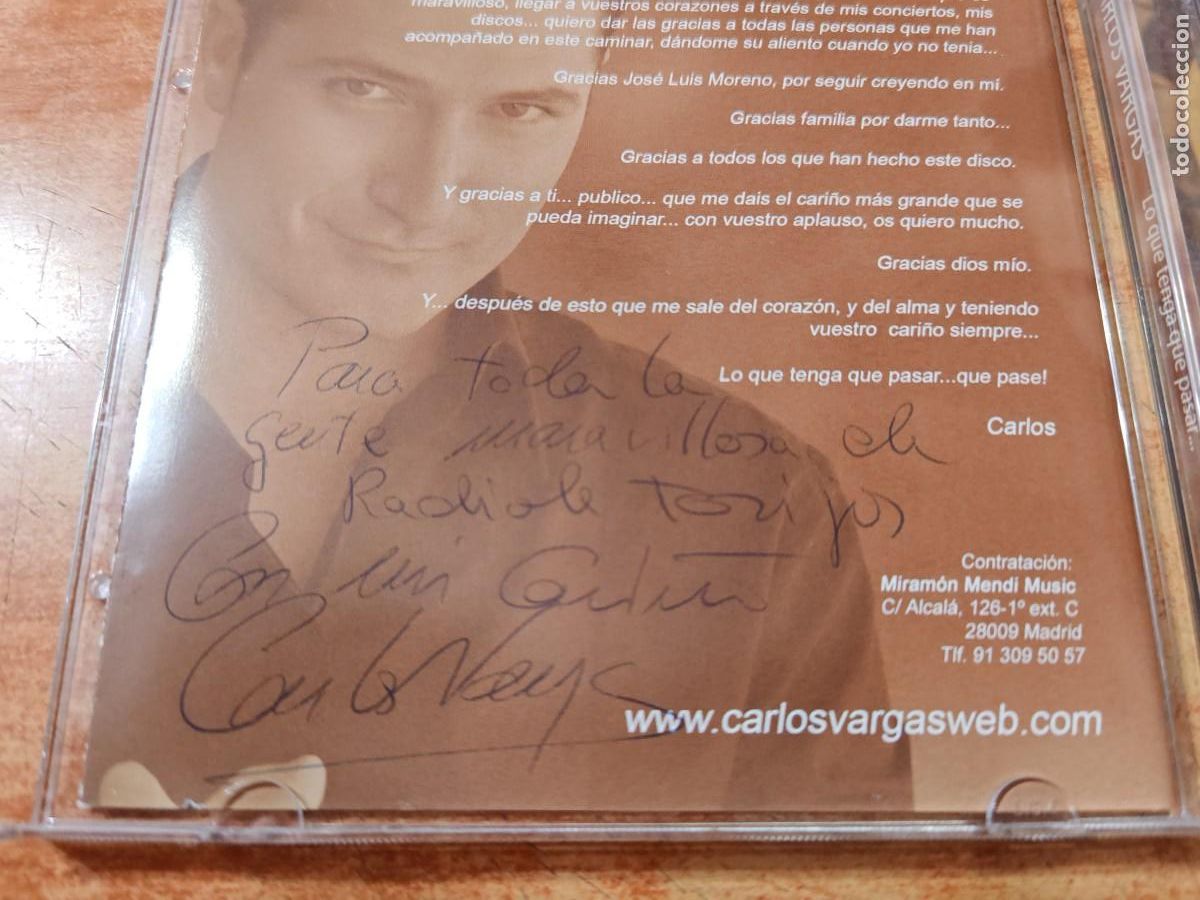 maravilloso, llegar a vuestros corazones a través de mis conciertos, mis
discos... quiero dar las gracias a todas las personas que me han
acompañado en este caminar, dándome su aliento cuando yo no tenia...
Gracias José Luis Moreno, por seguir creyendo en mí.
Gracias familia por darme tanto...
Gracias a todos los que han hecho este disco.
Y gracias a ti... publico... que me dais el cariño más grande que se
pueda imaginar... con vuestro aplauso, os quiero mucho.
Gracias dios mío.
Y... después de esto que me sale del corazón, y del alma y teniendo
vuestro cariño siempre...
Lo que tenga que pasar...que pase!
Carlos
Para toda la
gente maravillosa de
Radiole Torrijos
Con mi Cariño
Carlos Vargas
Contratación:
Miramón Mendi Music
C/ Alcalá, 126-1º ext. C
28009 Madrid
Tlf. 91 309 50 57
www.carlosvargasweb.com
CARLOS VARGAS Lo que tenga que pasar...
todocoleccion